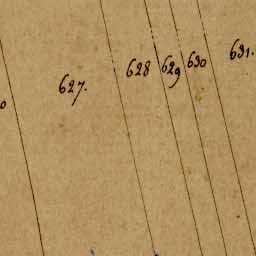 627.
628
629
630
631.